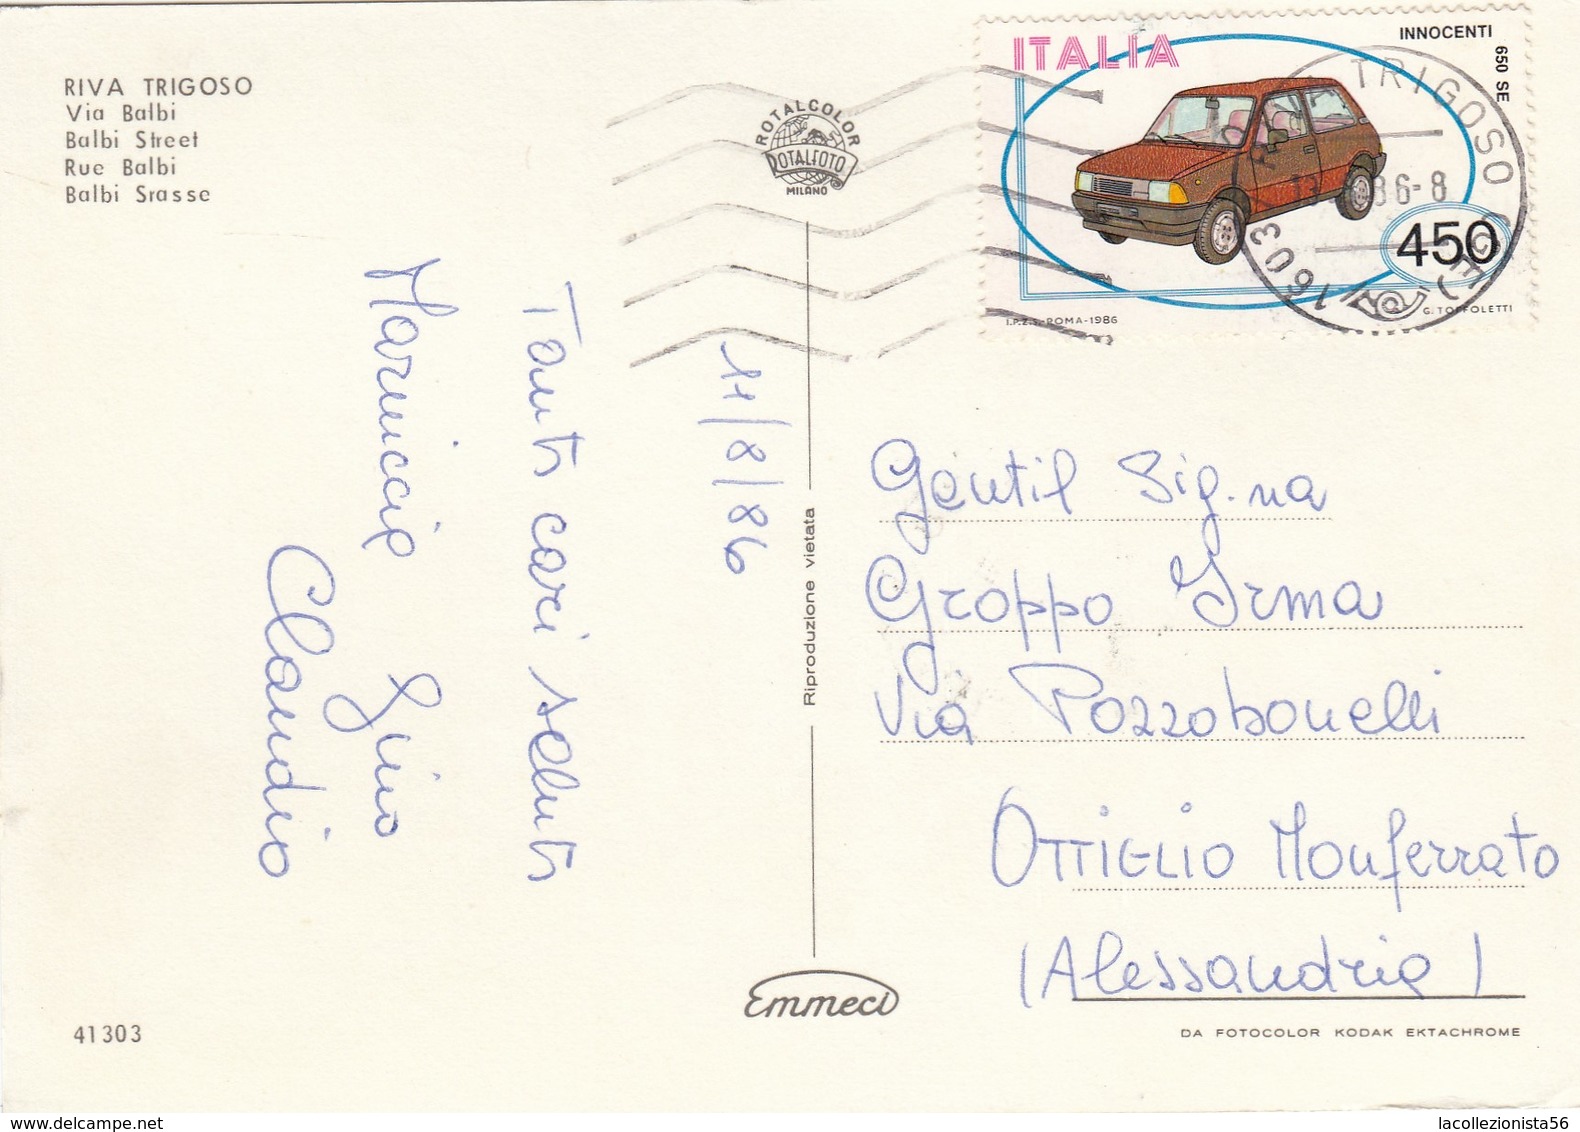 RIVA TRIGOSO
Via Balbi
Balbi Street
Rue Balbi
Balbi Srasse
ROTALCOLOR
ROTALFOTO
MILANO
ITALIA
INNOCENTI
650 SE
450
I.P.Z.S.-ROMA-1986
G. TOFFOLETTI
TRIGOSO
16039
86-8
11/8/86
Tanti cari saluti
Mariuccia Gino
Claudio
Riproduzione vietata
Gentil Sig.na
Groppo Irma
Via Pozzobonelli
OTTIGLIO Monferrato
(Alessandria)
Emmeci
41303
DA FOTOCOLOR KODAK EKTACHROME
www.delcampe.net
lacollezionista56